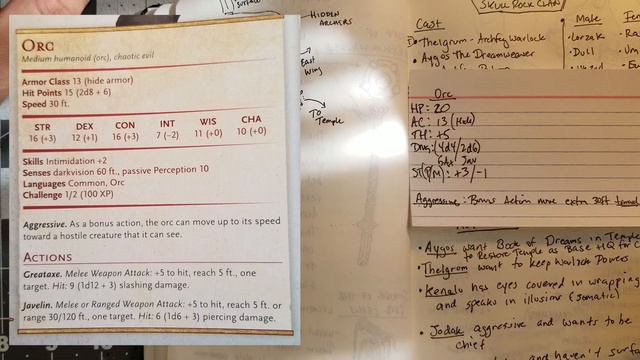 Orc
Medium humanoid (orc), chaotic evil
Armor Class 13 (hide armor)
Hit Points 15 (2d8 + 6)
Speed 30 ft.
STR DEX CON INT WIS CHA
16 (+3) 12 (+1) 16 (+3) 7 (−2) 11 (+0) 10 (+0)
Skills Intimidation +2
Senses darkvision 60 ft., passive Perception 10
Languages Common, Orc
Challenge 1/2 (100 XP)
Aggressive. As a bonus action, the orc can move up to its speed
toward a hostile creature that it can see.
Actions
Greataxe. Melee Weapon Attack: +5 to hit, reach 5 ft., one
target. Hit: 9 (1d12 + 3) slashing damage.
Javelin. Melee or Ranged Weapon Attack: +5 to hit, reach 5 ft. or
range 30/120 ft., one target. Hit: 6 (1d6 + 3) piercing damage.
Hidden
Archers
East
Wing
To
Temple
Skull Rock Clan
Cast
Thelgrum - Archfey Warlock
Aygos The Dreamweaver
Male
Lorzak
Dull
Orc
HP: 20
AC: 13 (Hide)
TH: +5
Dmg: (4d4/2d6)
Jav
+3/-1
Aggressive: Bonus Action move extra 30ft
Aygos want Book of Dreams in Temple
to Restore Temple as Base HQ for
Thelgrum want to keep Warlock Powers
Kenalu has eyes covered in wrapping
and speaks in illusions (Somatic)
Jodak aggressive and wants to be
chief
and haven't